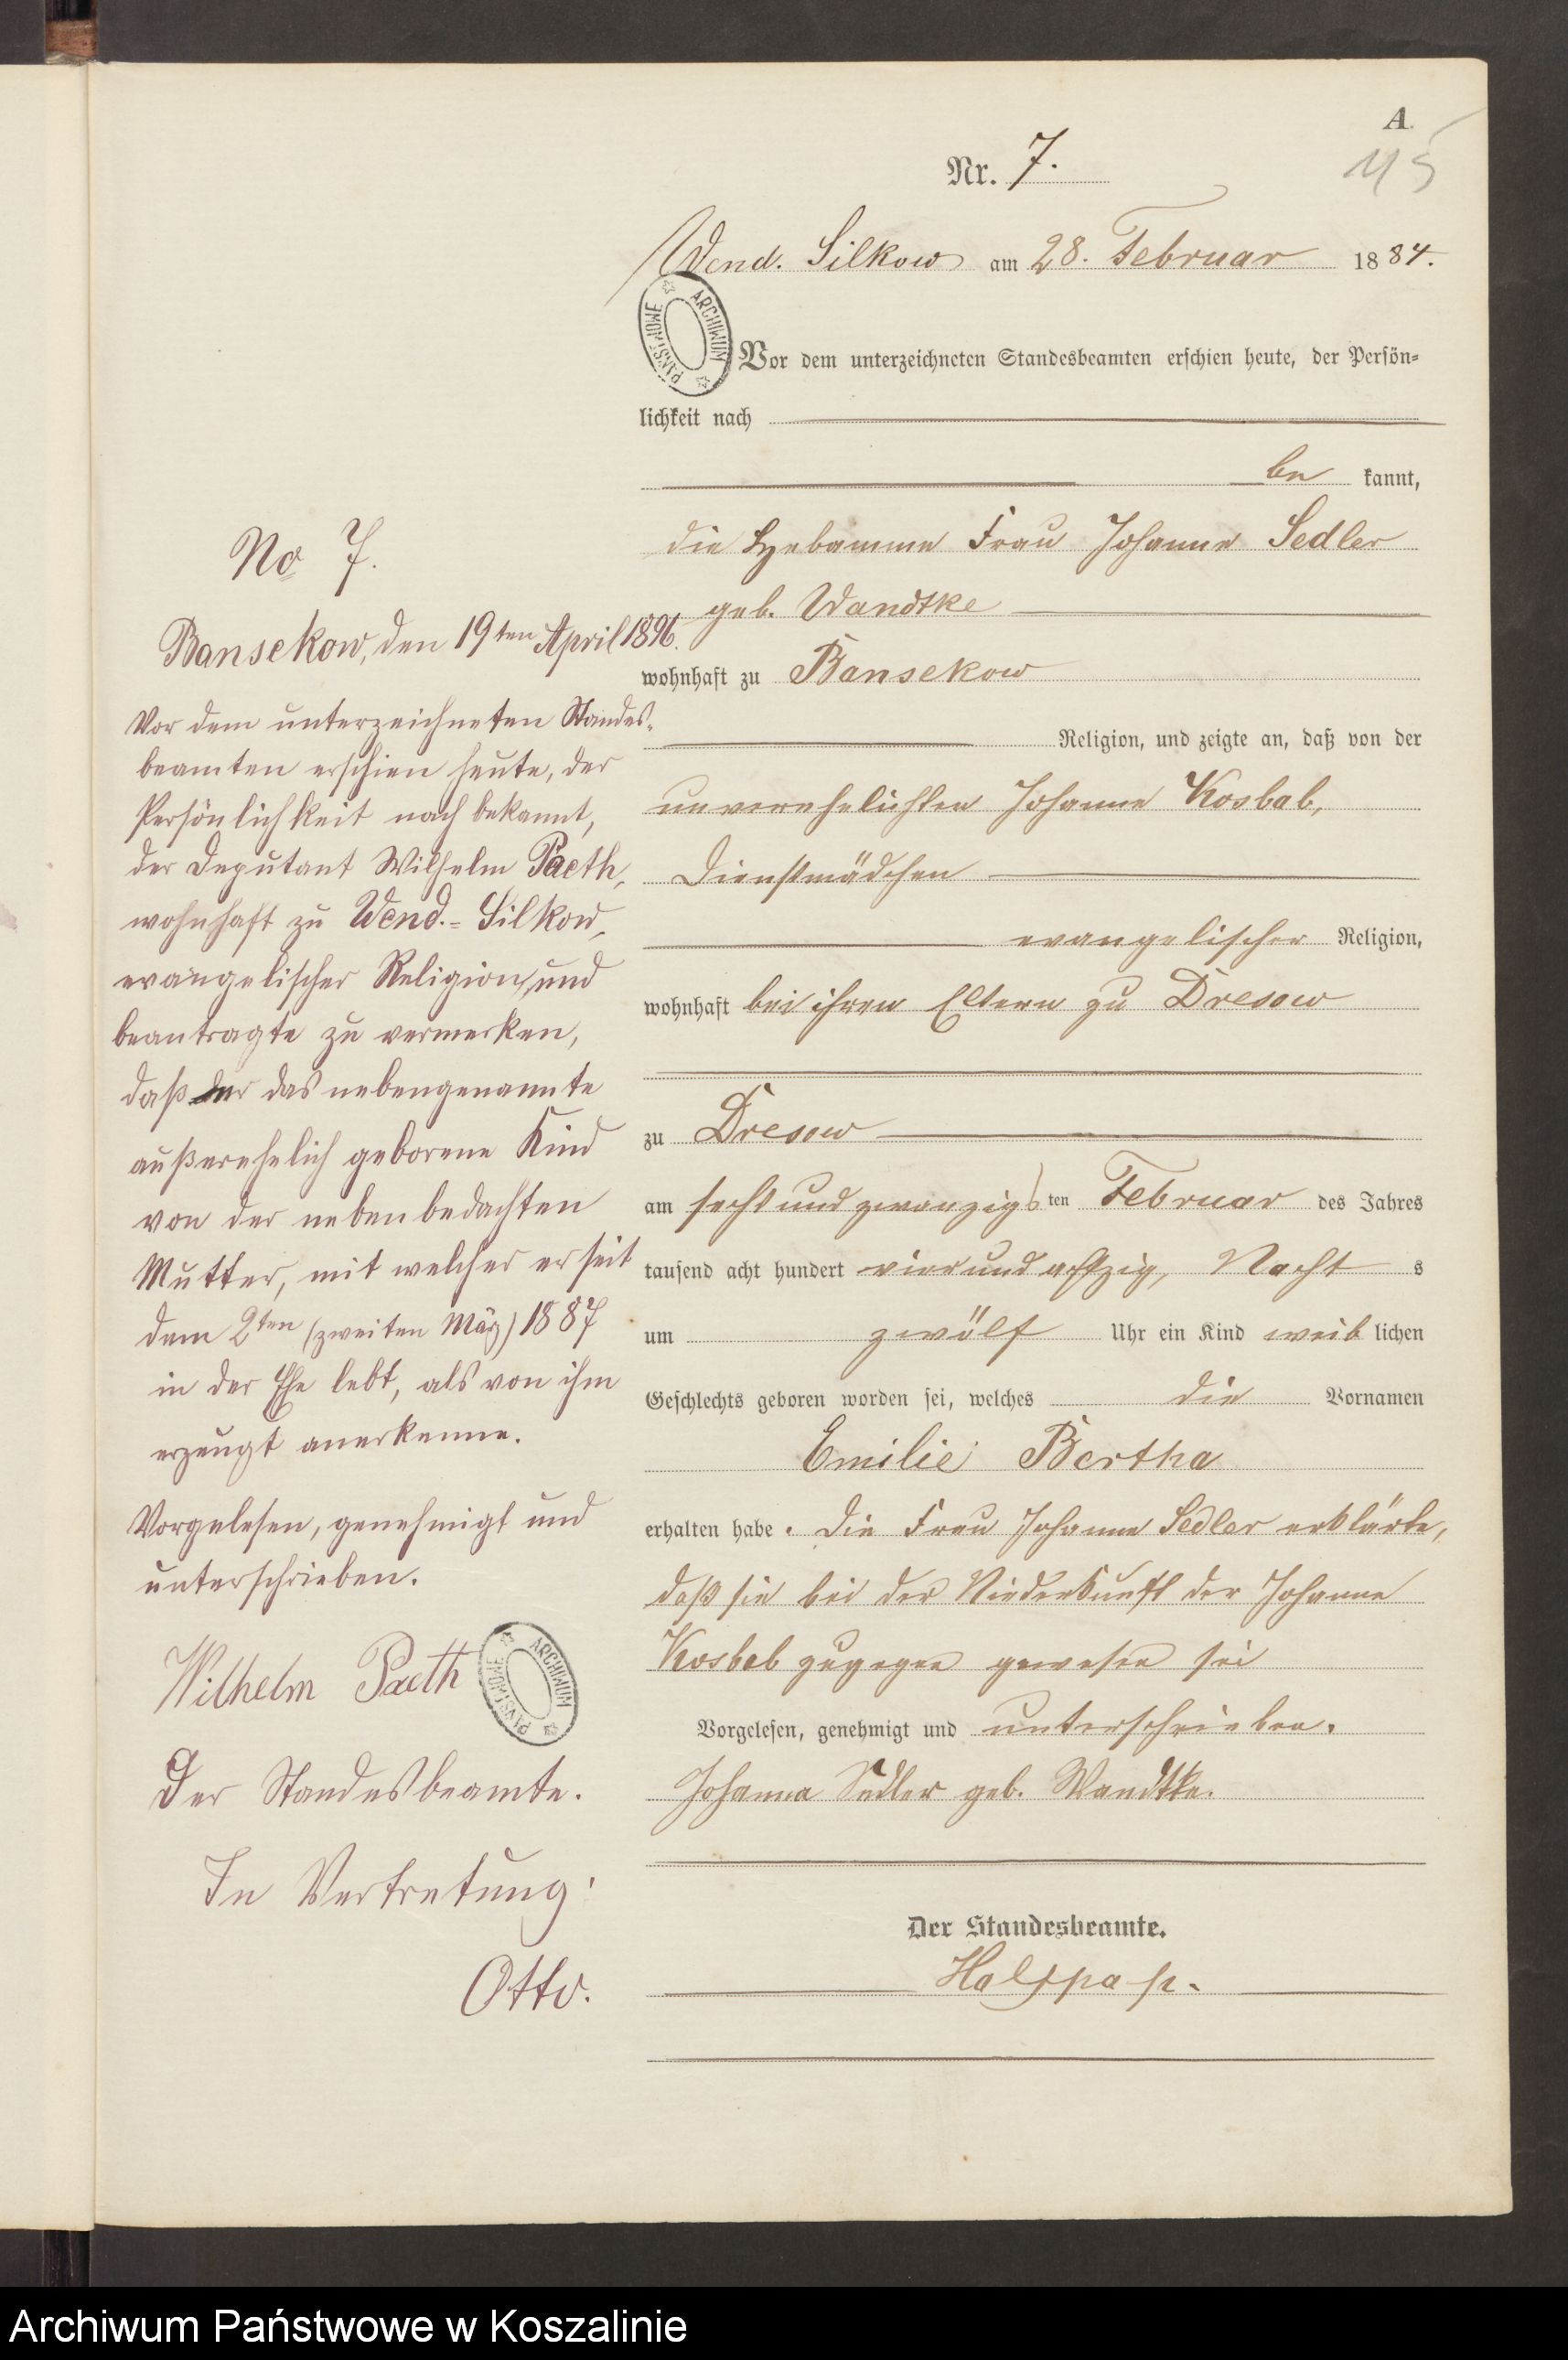 A.
115
Nr. 7.
Wend. Silkow am 28. Februar 1884.
ARCHIWUM PAŃSTWOWE
Vor dem unterzeichneten Standesbeamten erschien heute, der Persön-
lichkeit nach
be kannt,
die Hebamme Frau Johanne Sedler
geb. Wandtke
wohnhaft zu Bansekow
Religion, und zeigte an, daß von der
unverehelichten Johanne Kosbab,
Dienstmädchen
evangelischer Religion,
wohnhaft bei ihren Eltern zu Dresow
zu Dresow
am sechs und zwanzigsten Februar des Jahres
tausend acht hundert vier und achtzig, Nachts
um zwölf Uhr ein Kind weiblichen
Geschlechts geboren worden sei, welches die Vornamen
Emilie Bertha
erhalten habe. Die Frau Johanne Sedler erklärte,
daß sie bei der Niederkunft der Johanne
Kosbab zugegen gewesen sei
Vorgelesen, genehmigt und unterschrieben.
Johanna Sedler geb. Wandtke.
Der Standesbeamte.
No 7.
Bansekow, den 19ten April 1896.
Vor dem unterzeichneten Standes-
beamten erschien heute, der
Persönlichkeit nach bekannt,
der Deputant Wilhelm Paeth,
wohnhaft zu Wend.-Silkow,
evangelischer Religion, und
beantragte zu vermerken,
daß der das nebengenannte
außerehelich geborene Kind
von der nebenbedachten
Mutter, mit welcher er seit
dem 2ten (zweiten März) 1887
in der Ehe lebt, als von ihm
erzeugt anerkenne.
Vorgelesen, genehmigt und
unterschrieben.
Wilhelm Paeth
ARCHIWUM PAŃSTWOWE
Der Standesbeamte.
In Vertretung:
Otto.
Archiwum Państwowe w Koszalinie